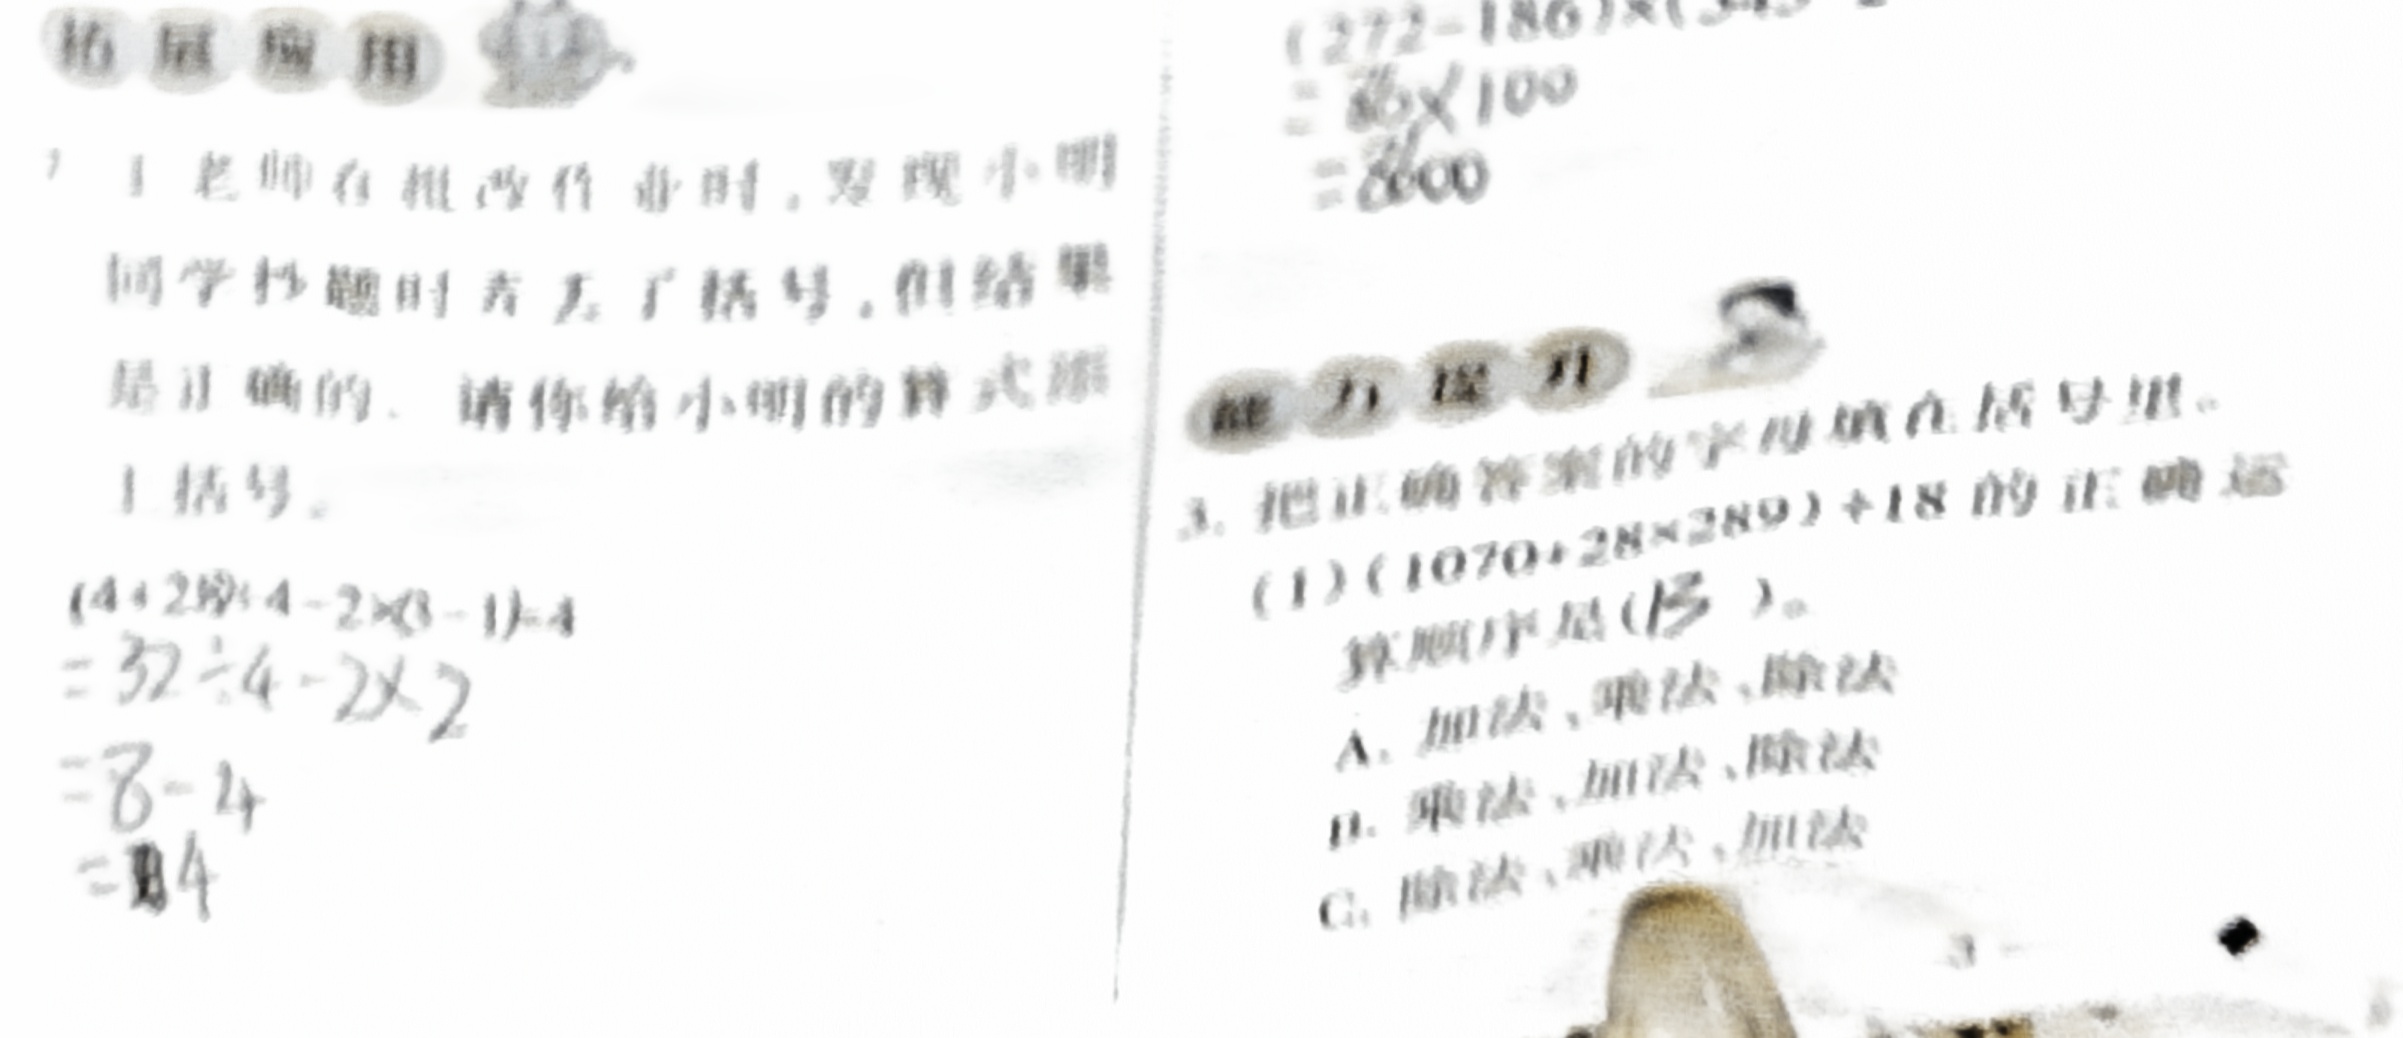 拓展应用
王老师在批改作业时,发现小明
同学抄题时弄丢了括号,但结果
是正确的。请你给小明的算式添
上括号。
(4+28)÷4-2×(3-1)=4
=32÷4-2×2
=8-4
=4
(272-186)×(345-2
=86×100
=8600
能力提升
3. 把正确答案的字母填在括号里。
(1)(1070+28×289)÷18的正确运
算顺序是(B)。
A. 加法、乘法、除法
B. 乘法、加法、除法
C. 除法、乘法、加法